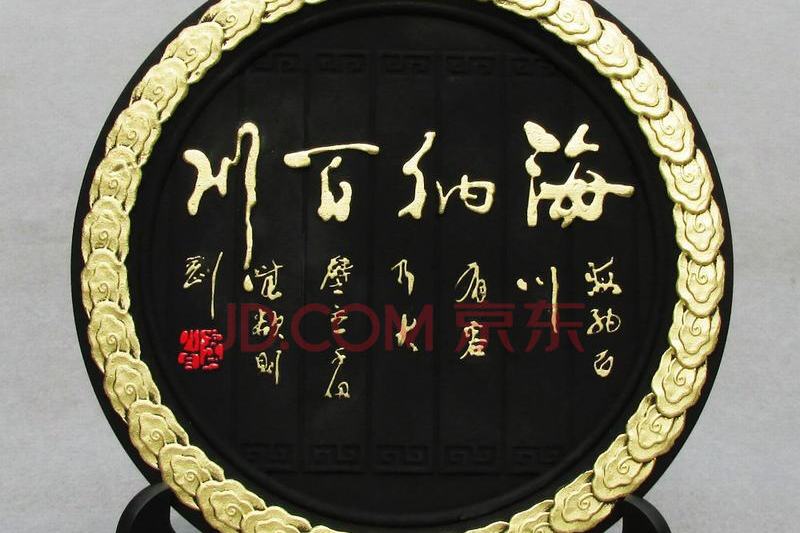 海纳百川
海纳百
川
有容
乃大
壁立千仞
無欲则
刚
JD.COM 京东